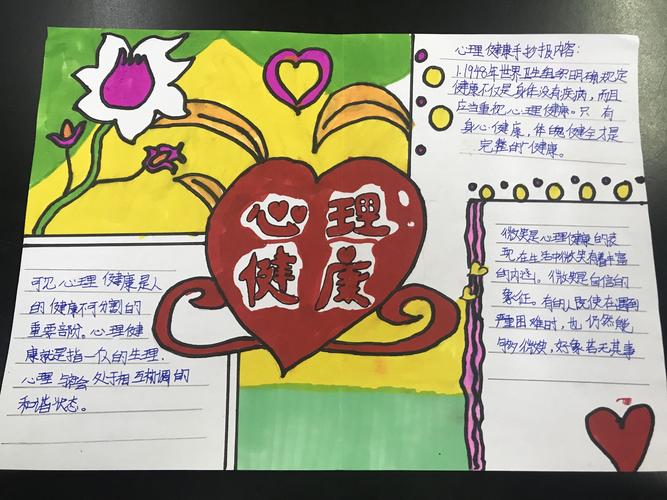 心理
健康
心理健康手抄报内容:
1.1948年世界卫生组织明确规定
健康不仅是身体没有疾病,而且
应当重视心理健康。只有
身心健康,体魄健全才是
完整的健康。
可见心理健康是人
的健康不可分割的
重要部份。心理健
康就是指一个人的生理.
心理与社会处于相互协调的
和谐状态。
微笑是心理健康的表
现在生活中微笑有着丰富
的内涵。微笑是自信的
象征。有的人既使在遇到
严重困难时,也仍然能
够微笑,好象若无其事